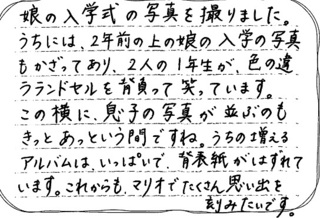 娘の入学式の写真を撮りました。
うちには、2年前の上の娘の入学の写真
もかざってあり、2人の1年生が、色の違
うランドセルを背負って笑っています。
この横に、息子の写真が並ぶのも
きっとあっという間ですね。うちの増える
アルバムは、いっぱいで、背表紙がはずれて
います。これからも、マリオでたくさん思い出を
刻みたいです。